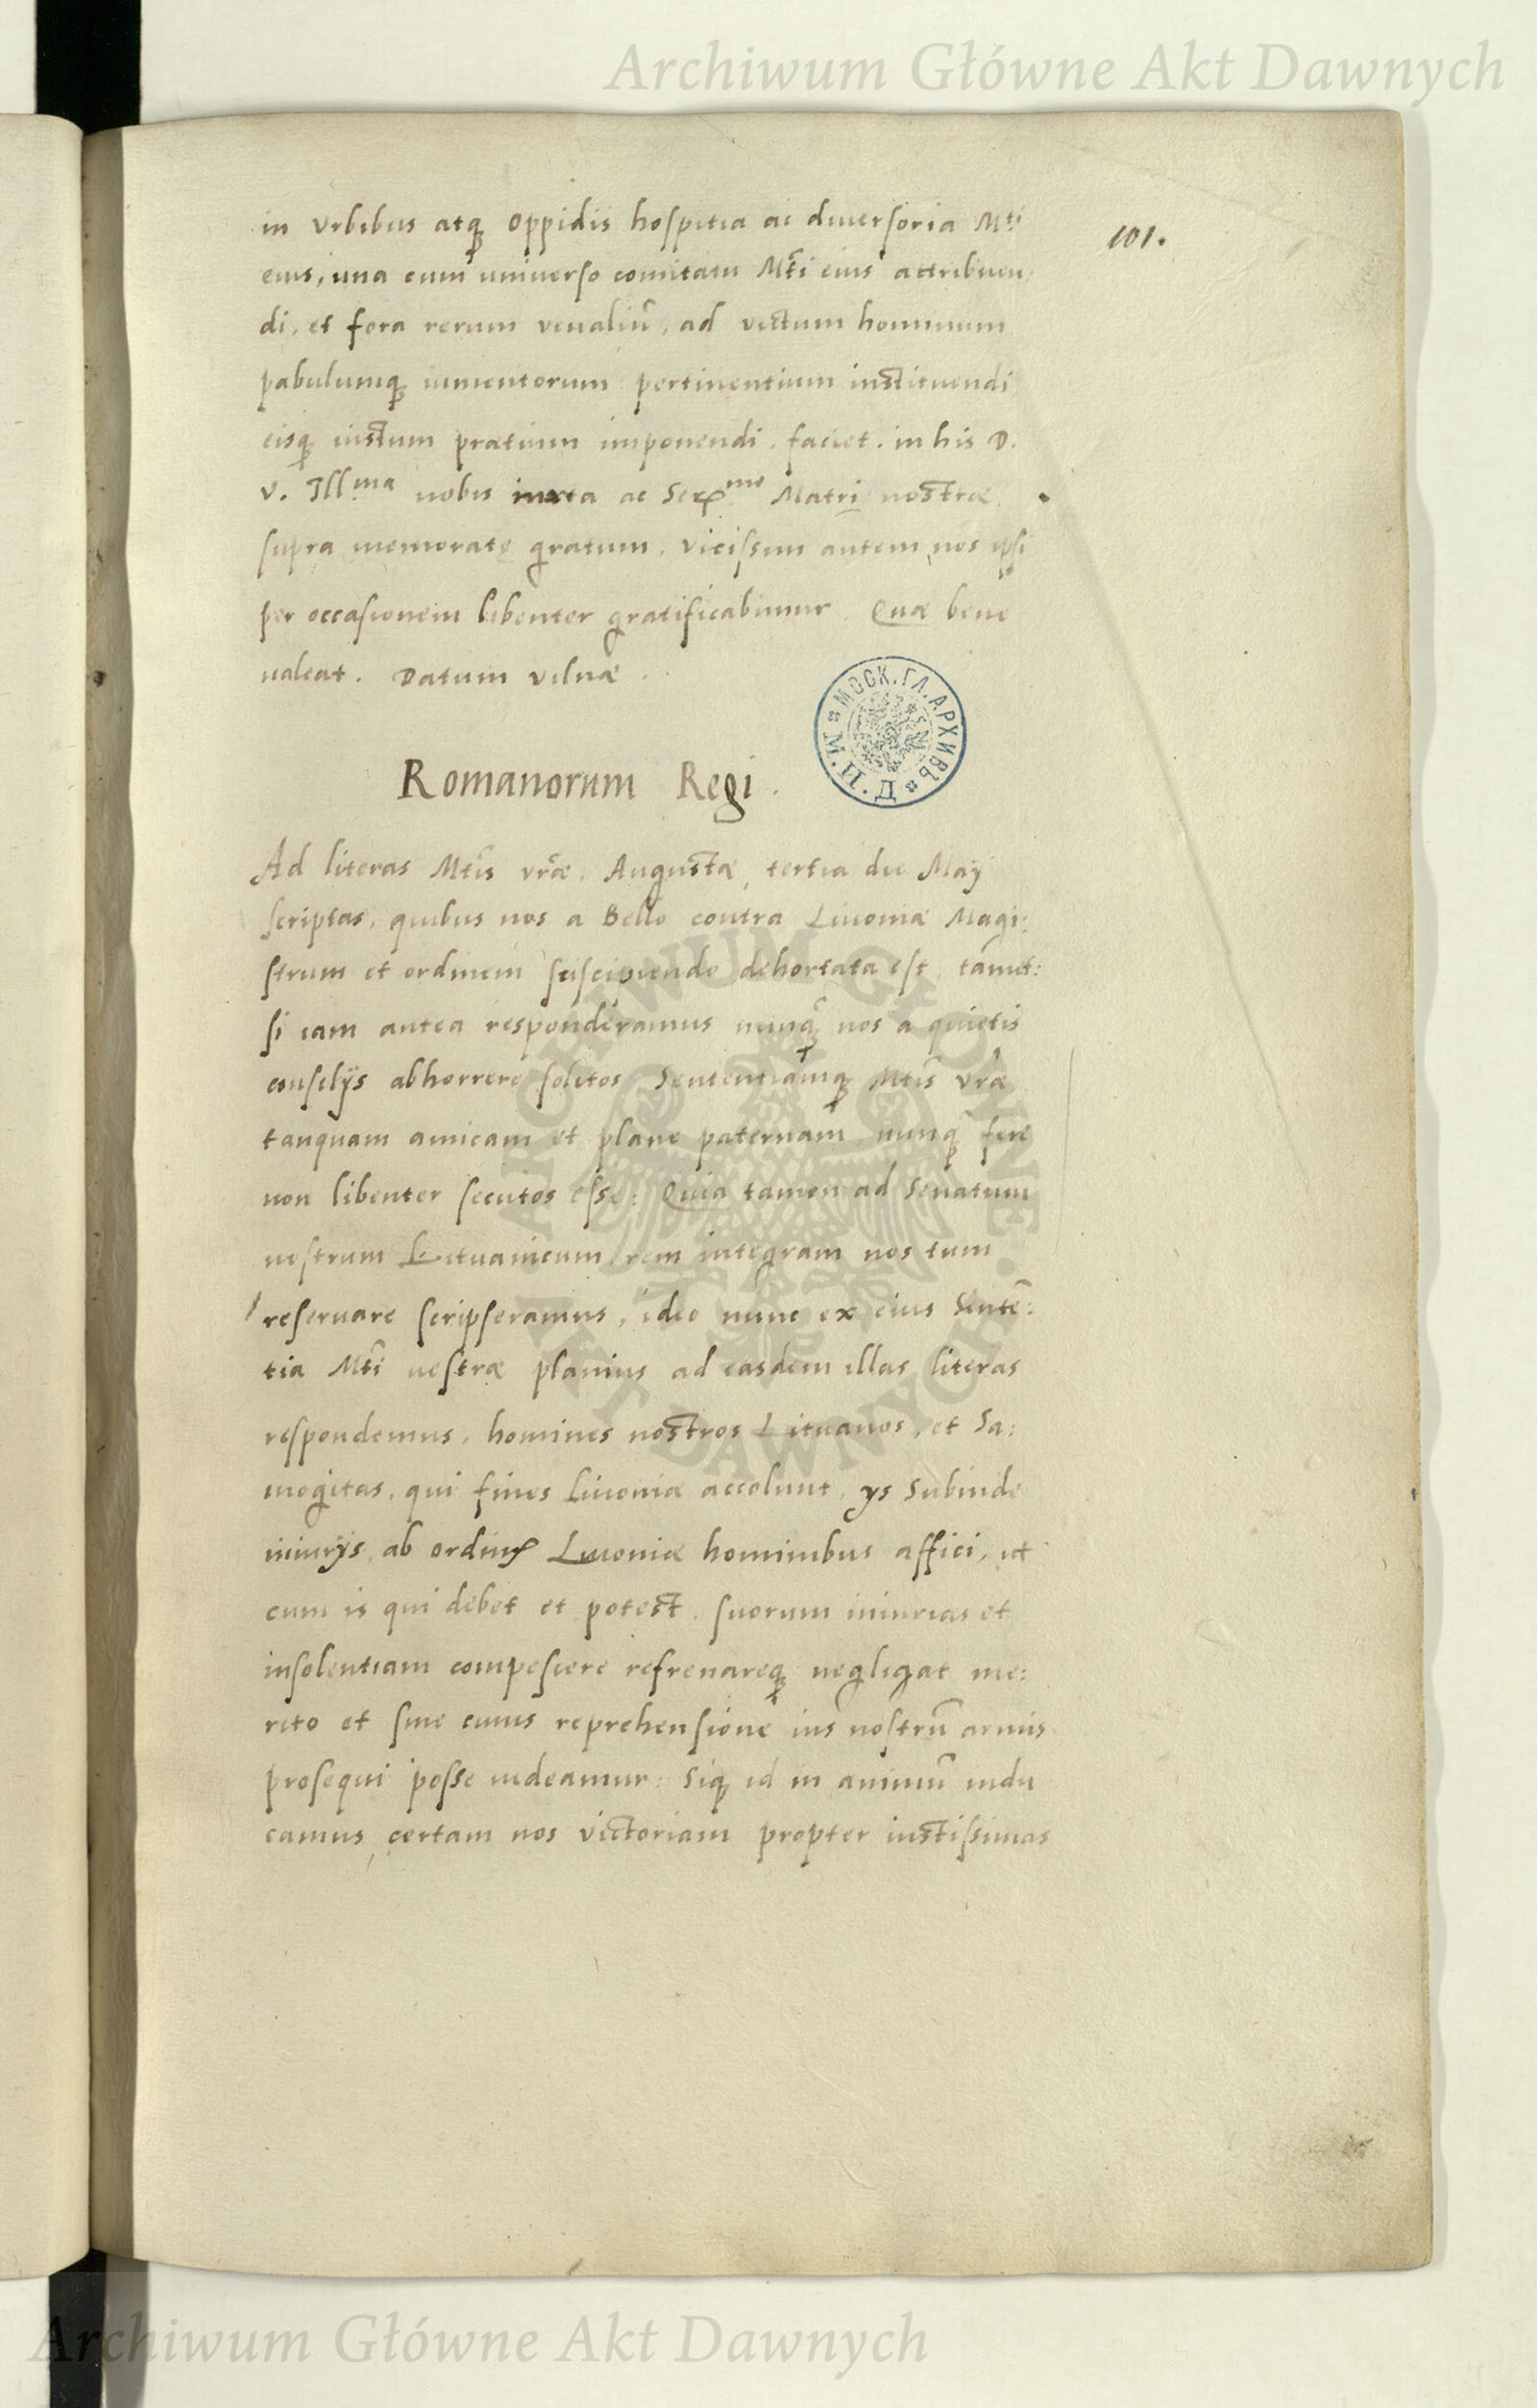 Archiwum Główne Akt Dawnych
101.
in Vrbibus atq; oppidis hospitia ac diuersoria Mti
eius, una cum uniuerso comitatu Mti eius attribuen:
di, et fora rerum venaliū, ad victum hominum
pabulumq; iumentorum pertinentium instituendi
eisq; iustum pratium imponendi. faciet. in his D.
V. Illma nobis iuxta ac Serme Matri nostræ
supra memoratę gratum. vicissim autem nos ipsi
per occasionem libenter gratificabimur. Quæ bene
ualeat. Datum vilnæ.
МОСК. ГЛ. АРХИВЪ М. И. Д.
Romanorum Regi.
Ad literas Mtis vræ. Augustæ tertia die Maÿ
scriptas, quibus nos a Bello contra Liuoniæ Magi:
strum et ordinem suscipiendo dehortata est, tamet:
si iam antea responderamus nunq̃ nos a quietis
consilÿs abhorrere solitos Sententiamq; Mtis vræ
tanquam amicam et plane paternam nunq̃ fere
non libenter secutos esse: Quia tamen ad Senatum
nostrum Lituanicum rem integram nos tum
reseruare scripseramus, ideo nunc ex eius Sentē:
tia Mti uestræ planius ad easdem illas literas
respondemus, homines nostros Lituanos, et Sa:
mogitas, qui fines Liuoniæ accolunt, ÿs Subinde
iniurÿs ab ordinis Liuoniæ hominibus affici, ut
cum is qui debet et potest, suorum iniurias et
insolentiam compescere refrenareq; negligat me:
rito et sine cuius reprehensione ius nostrū armis
prosequi posse uideamur: Siq; id in animū indu
camus, certam nos victoriam propter iustissimas
ARCHIWUM GŁÓWNE AKT DAWNYCH
Archiwum Główne Akt Dawnych